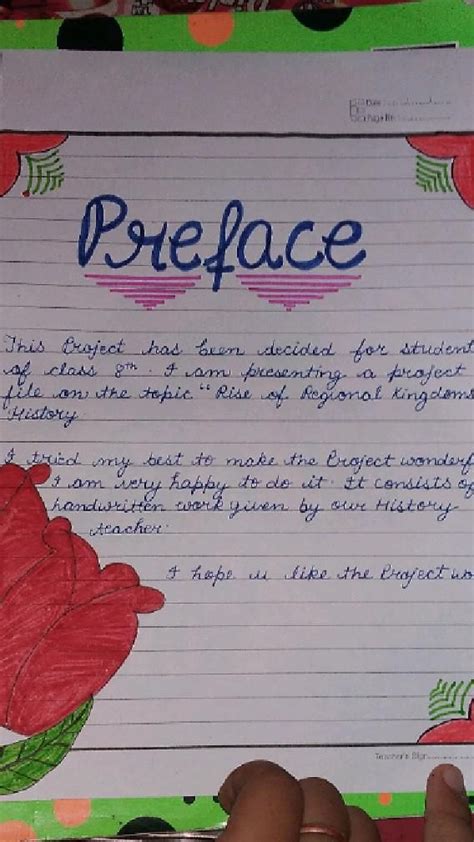 Date
Page No.
Preface
This Project has been decided for student
of class 8th. I am presenting a project
file on the topic "Rise of Regional Kingdoms
History.
I tried my best to make the Project wonderf
I am very happy to do it. It consists of
handwritten work given by our History
teacher.
I hope u like the Project wo
Teacher's Sign